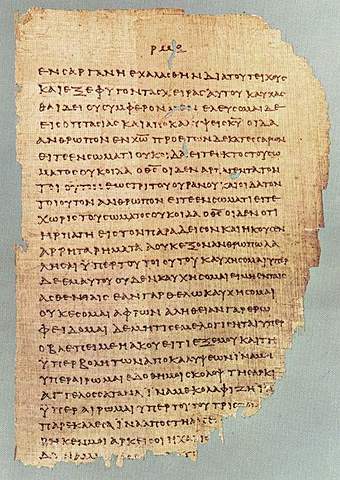 ΕΝϹΑΡΓΑΝΗΕΧΑΛΑϹΘΗΝΔΙΑΤΟΥΤΕΙΧΟΥϹ
ΚΑΙΕΞΕΦΥΓΟΝΤΑϹΧΕΙΡΑϹΑΥΤΟΥΚΑΥΧΑϹ
ΘΑΙΔΕΙΟΥϹΥΜΦΕΡΟΝΜΕΝΕΛΕΥϹΟΜΑΙΔΕ
ΕΙϹΟΠΤΑϹΙΑϹΚΑΙΑΠΟΚΑΛΥΨΕΙϹΚ̅Υ̅ΟΙΔΑ
ΑΝΘΡΩΠΟΝΕΝΧ̅Ω̅ΠΡΟΕΤΩΝΔΕΚΑΤΕϹϹΑΡΩΝ
ΕΙΤΕΕΝϹΩΜΑΤΙΟΥΚΟΙΔΑΕΙΤΕΕΚΤΟϹΤΟΥϹΩ
ΜΑΤΟϹΟΥΚΟΙΔΑΟΘ̅Ϲ̅ΟΙΔΕΝΑΡΠΑΓΕΝΤΑΤΟΝ
ΤΟΙΟΥΤΟΝΕΩϹΤΡΙΤΟΥΟΥΡΑΝΟΥΚΑΙΟΙΔΑΤΟΝ
ΤΟΙΟΥΤΟΝΑΝΘΡΩΠΟΝΕΙΤΕΕΝϹΩΜΑΤΙΕΙΤΕ
ΧΩΡΙϹΤΟΥϹΩΜΑΤΟϹΟΥΚΟΙΔΑΟΘ̅Ϲ̅ΟΙΔΕΝΟΤΙ
ΗΡΠΑΓΗΕΙϹΤΟΝΠΑΡΑΔΕΙϹΟΝΚΑΙΗΚΟΥϹΕΝ
ΑΡΡΗΤΑΡΗΜΑΤΑΑΟΥΚΕΞΟΝΑΝΘΡΩΠΩΛΑ
ΛΗϹΑΙΫΠΕΡΤΟΥΤΟΙΟΥΤΟΥΚΑΥΧΗϹΟΜΑΙΫΠΕΡ
ΔΕΕΜΑΥΤΟΥΟΥΔΕΝΚΑΥΧΗϹΟΜΑΙΕΙΜΗΕΝΤΑΙϹ
ΑϹΘΕΝΕΙΑΙϹΕΑΝΓΑΡΘΕΛΩΚΑΥΧΗϹΟΜΑΙ
ΟΥΚΕϹΟΜΑΙΑΦΡΩΝΑΛΗΘΕΙΑΝΓΑΡΕΡΩ
ΦΕΙΔΟΜΑΙΔΕΜΗΤΙϹΕΜΕΛΟΓΙϹΗΤΑΙΫΠΕΡ
ΟΒΛΕΠΕΙΜΕΗΑΚΟΥΕΙΤΙΕΞΕΜΟΥΚΑΙΤΗ
ΫΠΕΡΒΟΛΗΤΩΝΑΠΟΚΑΛΥΨΕΩΝΙΝΑΜΗ
ΫΠΕΡΑΙΡΩΜΑΙΕΔΟΘΗΜΟΙϹΚΟΛΟΨΤΗϹΑΡΚΙ
ΑΓΓΕΛΟϹϹΑΤΑΝΑΙΝΑΜΕΚΟΛΑΦΙΖΗ
ΫΠΕΡΑΙΡΩΜΑΙΫΠΕΡΤΟΥΤΟΥΤΡΙϹ
ΠΑΡΕΚΑΛΕϹΑΙΝΑΑΠΟϹΤΗ
ΡΗΚΕΝΜΟΙΑΡΚΕΙϹΟΙΗΧΑΡΙϹ
ΔΥΝΑΜΙϹ